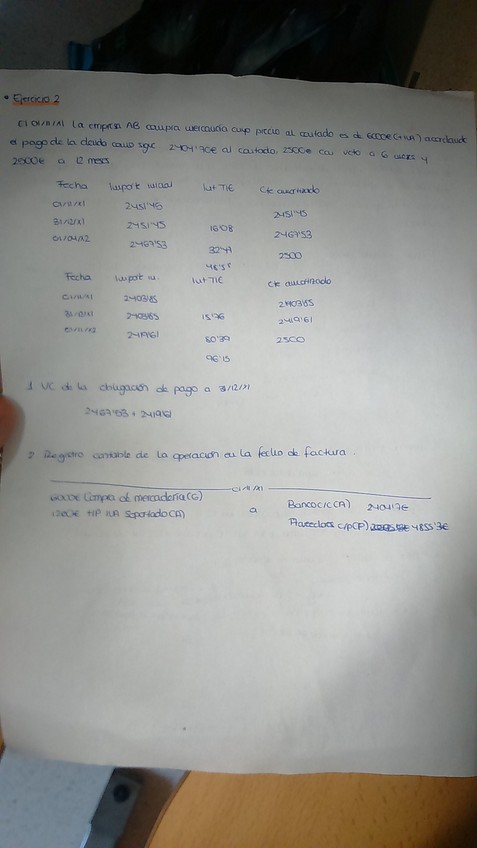 • Ejercicio 2
El 01/11/X1 la empresa AB compra mercadería cuyo precio al contado es de 6000€ (+IVA) acordando
el pago de la deuda como sigue 2404'70€ al contado, 2500€ con vcto a 6 meses y
2500€ a 12 meses
Fecha Importe inicial Int TIE Cte amortizado
01/11/X1 2451'45 2451'45
31/12/X1 2451'45 16'08 2467'53
01/04/X2 2467'53 32'47 2500
48'55
Fecha Importe in. Int TIE Cte amortizado
01/11/X1 2403'85 2403'85
2403'85 15'76 2419'61
01/11/X2 2419'61 80'39 2500
96'15
1 VC de la obligación de pago a 31/12/X1
2467'53 + 2419'61
2 Registro contable de la operación en la fecha de factura.
01/11/X1
6000€ Compra de mercadería (G) Banco c/c (A) 2404'7€
1260€ HP IVA Soportado (A) a Proveedores c/p (P) 4855'3€